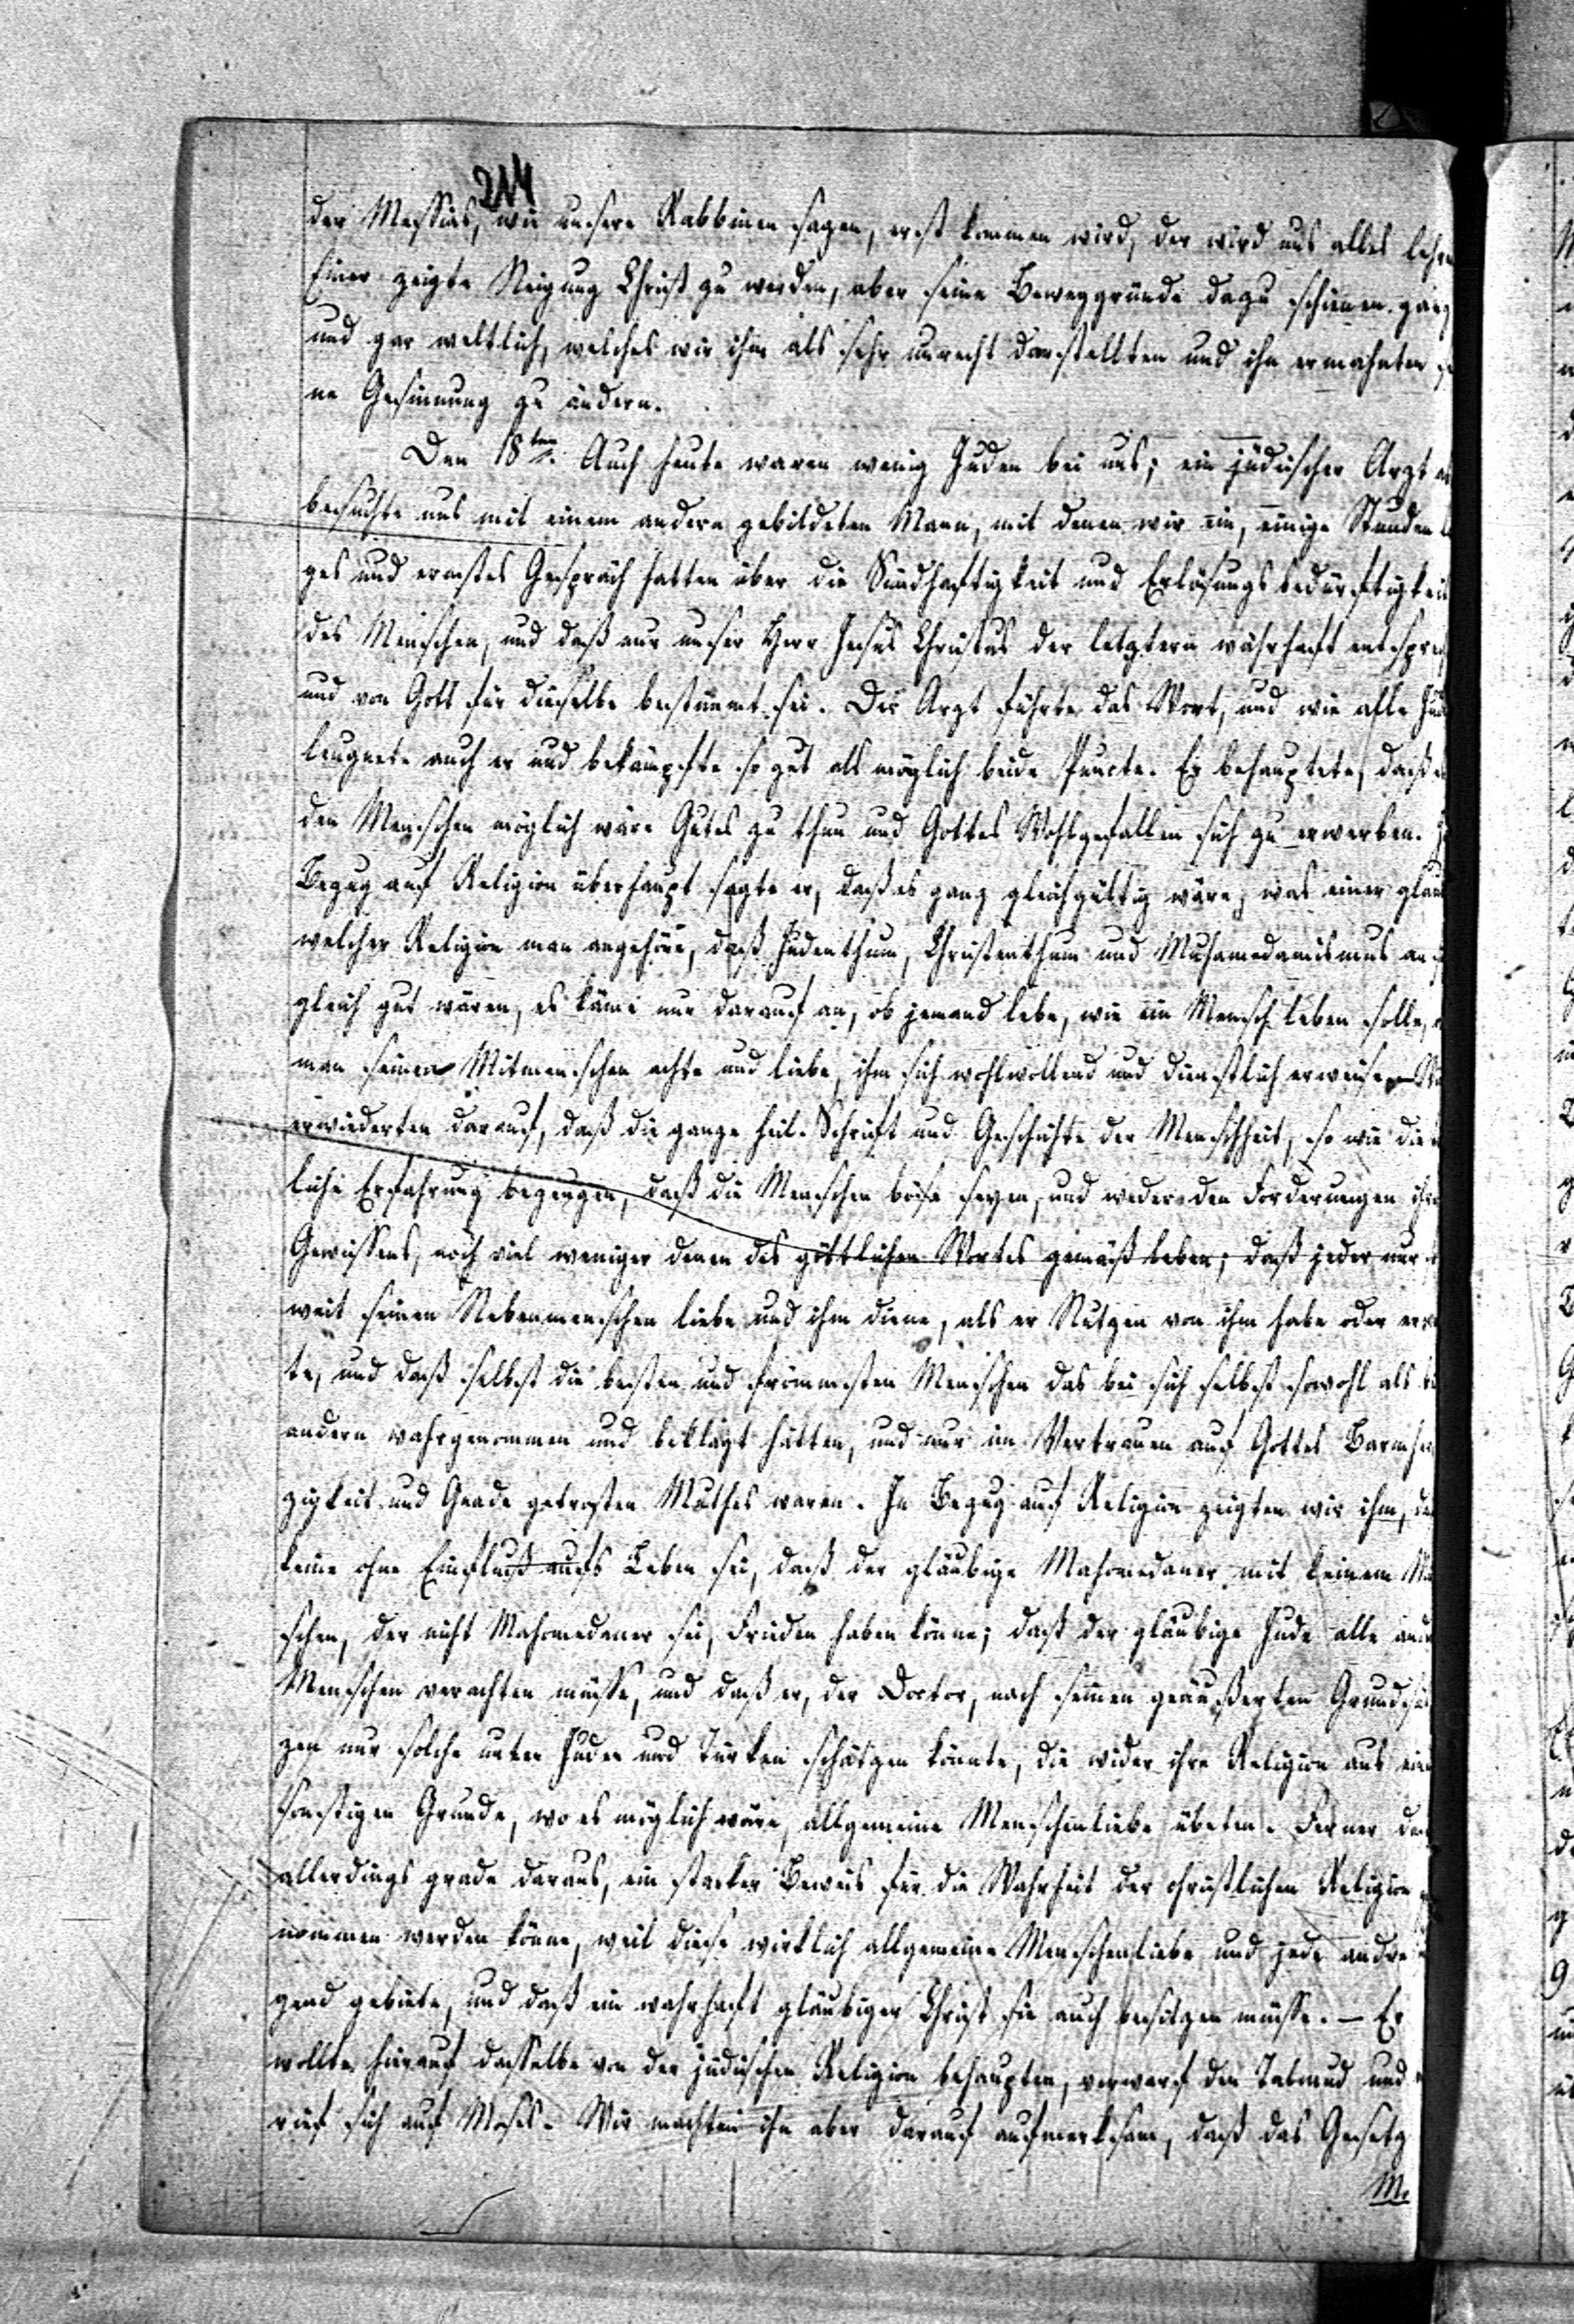 214
der Messias, wie unsere Rabbinen sagen, erst kommen wird, der wird uns alles lehren
Einer zeigte Neigung Christ zu werden, aber seine Beweggründe dazu schienen ganz
und gar weltlich, welches wir ihm als sehr unrecht darstellten und ihn ermahnten
ne Gesinnung zu ändern.
Den 18ten. Auch heute waren wenig Juden bei uns; ein jüdischer Arzt
besuchte uns mit einem andern gebildeten Mann, mit denen wir ein, einige Stunden
ges und ernstes Gespräch hatten über die Sündhaftigkeit und Erlösungsbedürftigkeit
des Menschen, und daß nur unser Herr Jesus Christus der letztern wahrhaft entsprech
und von Gott für dieselbe bestimmt sei. Der Arzt führte das Wort, und wie alle Jud
leugnete auch er und bekämpfte so gut als möglich beide Puncte. Er behauptete, daß
den Menschen möglich wäre Gutes zu thun und Gottes Wohlgefallen sich zu erwerben.
Bezug auf Religion überhaupt sagte er, daß es ganz gleichgültig wäre, was einer glau
welcher Religion man angehöre, daß Judenthum, Christenthum und Muhamedanismus an
gleich gut wären, es käme nur darauf an, ob jemand lebe, wie ein Mensch leben solle,
man seinen Mitmenschen achte und liebe, ihm sich wohlwollend und dienstlich erweise. –
erwiederten darauf, daß die ganze heil. Schrift und Geschichte der Menschheit, so wie die
liche Erfahrung bezeugen, daß die Menschen böse seyen, und weder den Forderungen ihre
Gewissens, noch viel weniger denen des göttlichen Wortes gemäß leben; daß jeder nur
weit seinen Nebenmenschen liebe und ihm diene, als er Nutzen von ihm habe oder erw
te, und daß selbst die besten und frömmsten Menschen das bei sich selbst sowohl als
andern wahrgenommen und beklagt hätten, und nur im Vertrauen auf Gottes Barmher
zigkeit und Gnade getrosten Muthes waren. In Bezug auf Religion zeigten wir ihm,
keine ohne Einfluß aufs Leben sei, daß der gläubige Mahomedaner mit keinem
schen, der nicht Mahomedaner sei, Frieden haben könne; daß der gläubige Jude alle and
Menschen verachten müsse, und daß er, der Doctor, nach seinen geäußerten Grundsä
zen nur solche unter Juden und Türken schätzen könnte, die wider ihre Religion aus ein
sonstigen Grunde, wo es möglich wäre, allgemeine Menschenliebe übeten. Ferner
allerdings grade daraus, ein starker Beweis für die Wahrheit der christlichen Religion
nommen werden könne, weil diese wirklich allgemeine Menschenliebe und jede andre
gend gebiete, und daß ein wahrhaft gläubiger Christ sie auch besitzen müsse. – Er
wollte hierauf dasselbe von der jüdischen Religion behaupten, verwarf den Talmud und
rief sich auf Moses. Wir machten ihn aber darauf aufmerksam, daß das Gesetz
M.